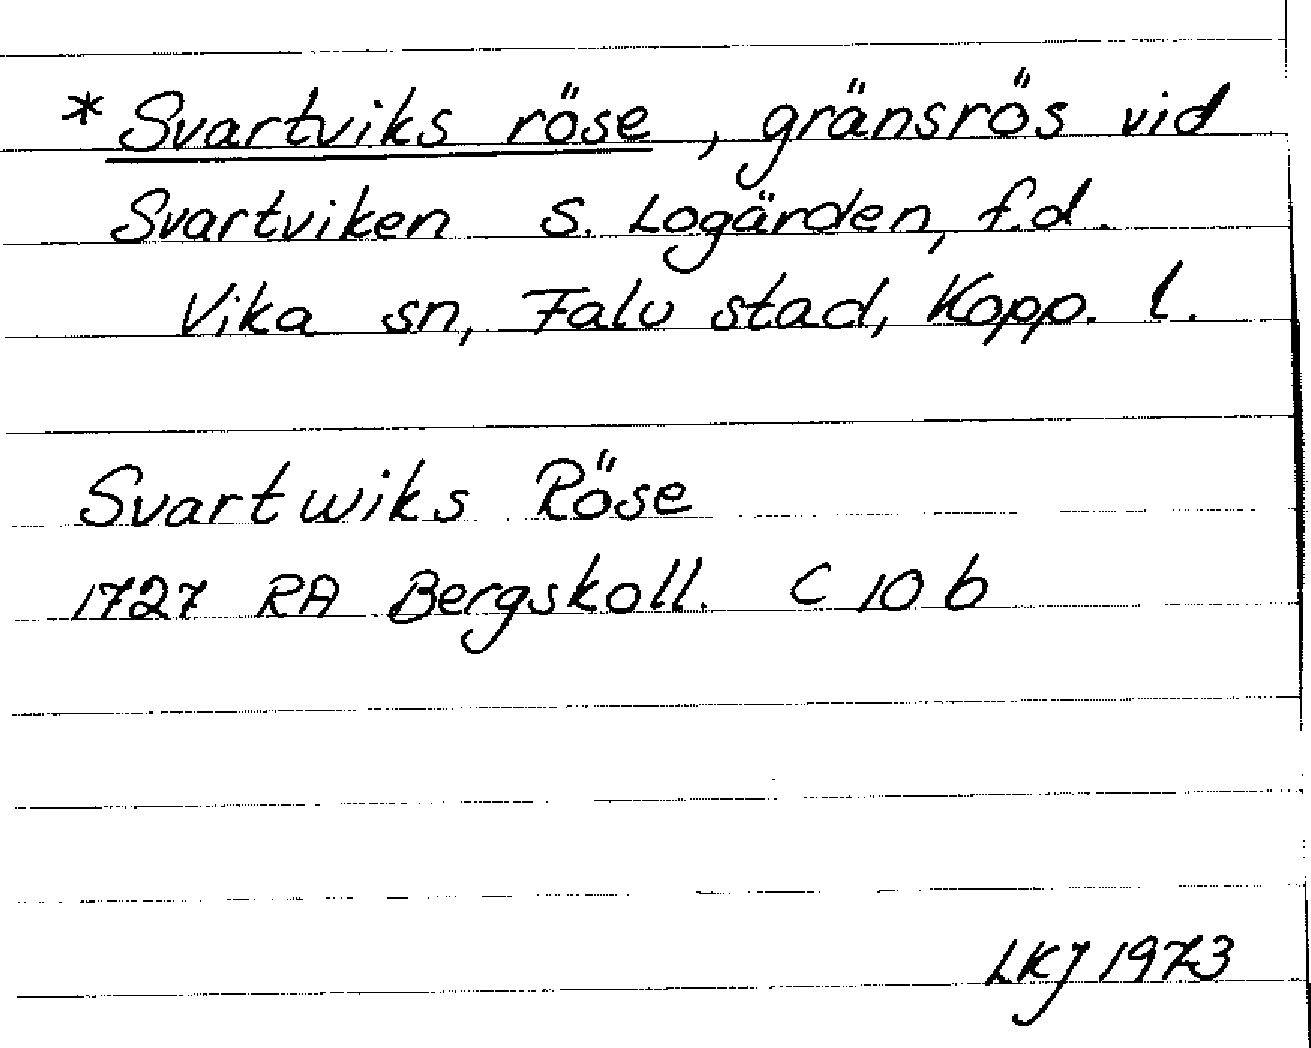 * Svartviks röse, gränsrös vid
Svartviken S. Logärden, f.d.
Vika sn, Falu stad, Kopp. l.
Svartwiks Röse
1727 RA Bergskoll. C 10 b
LKJ 1973